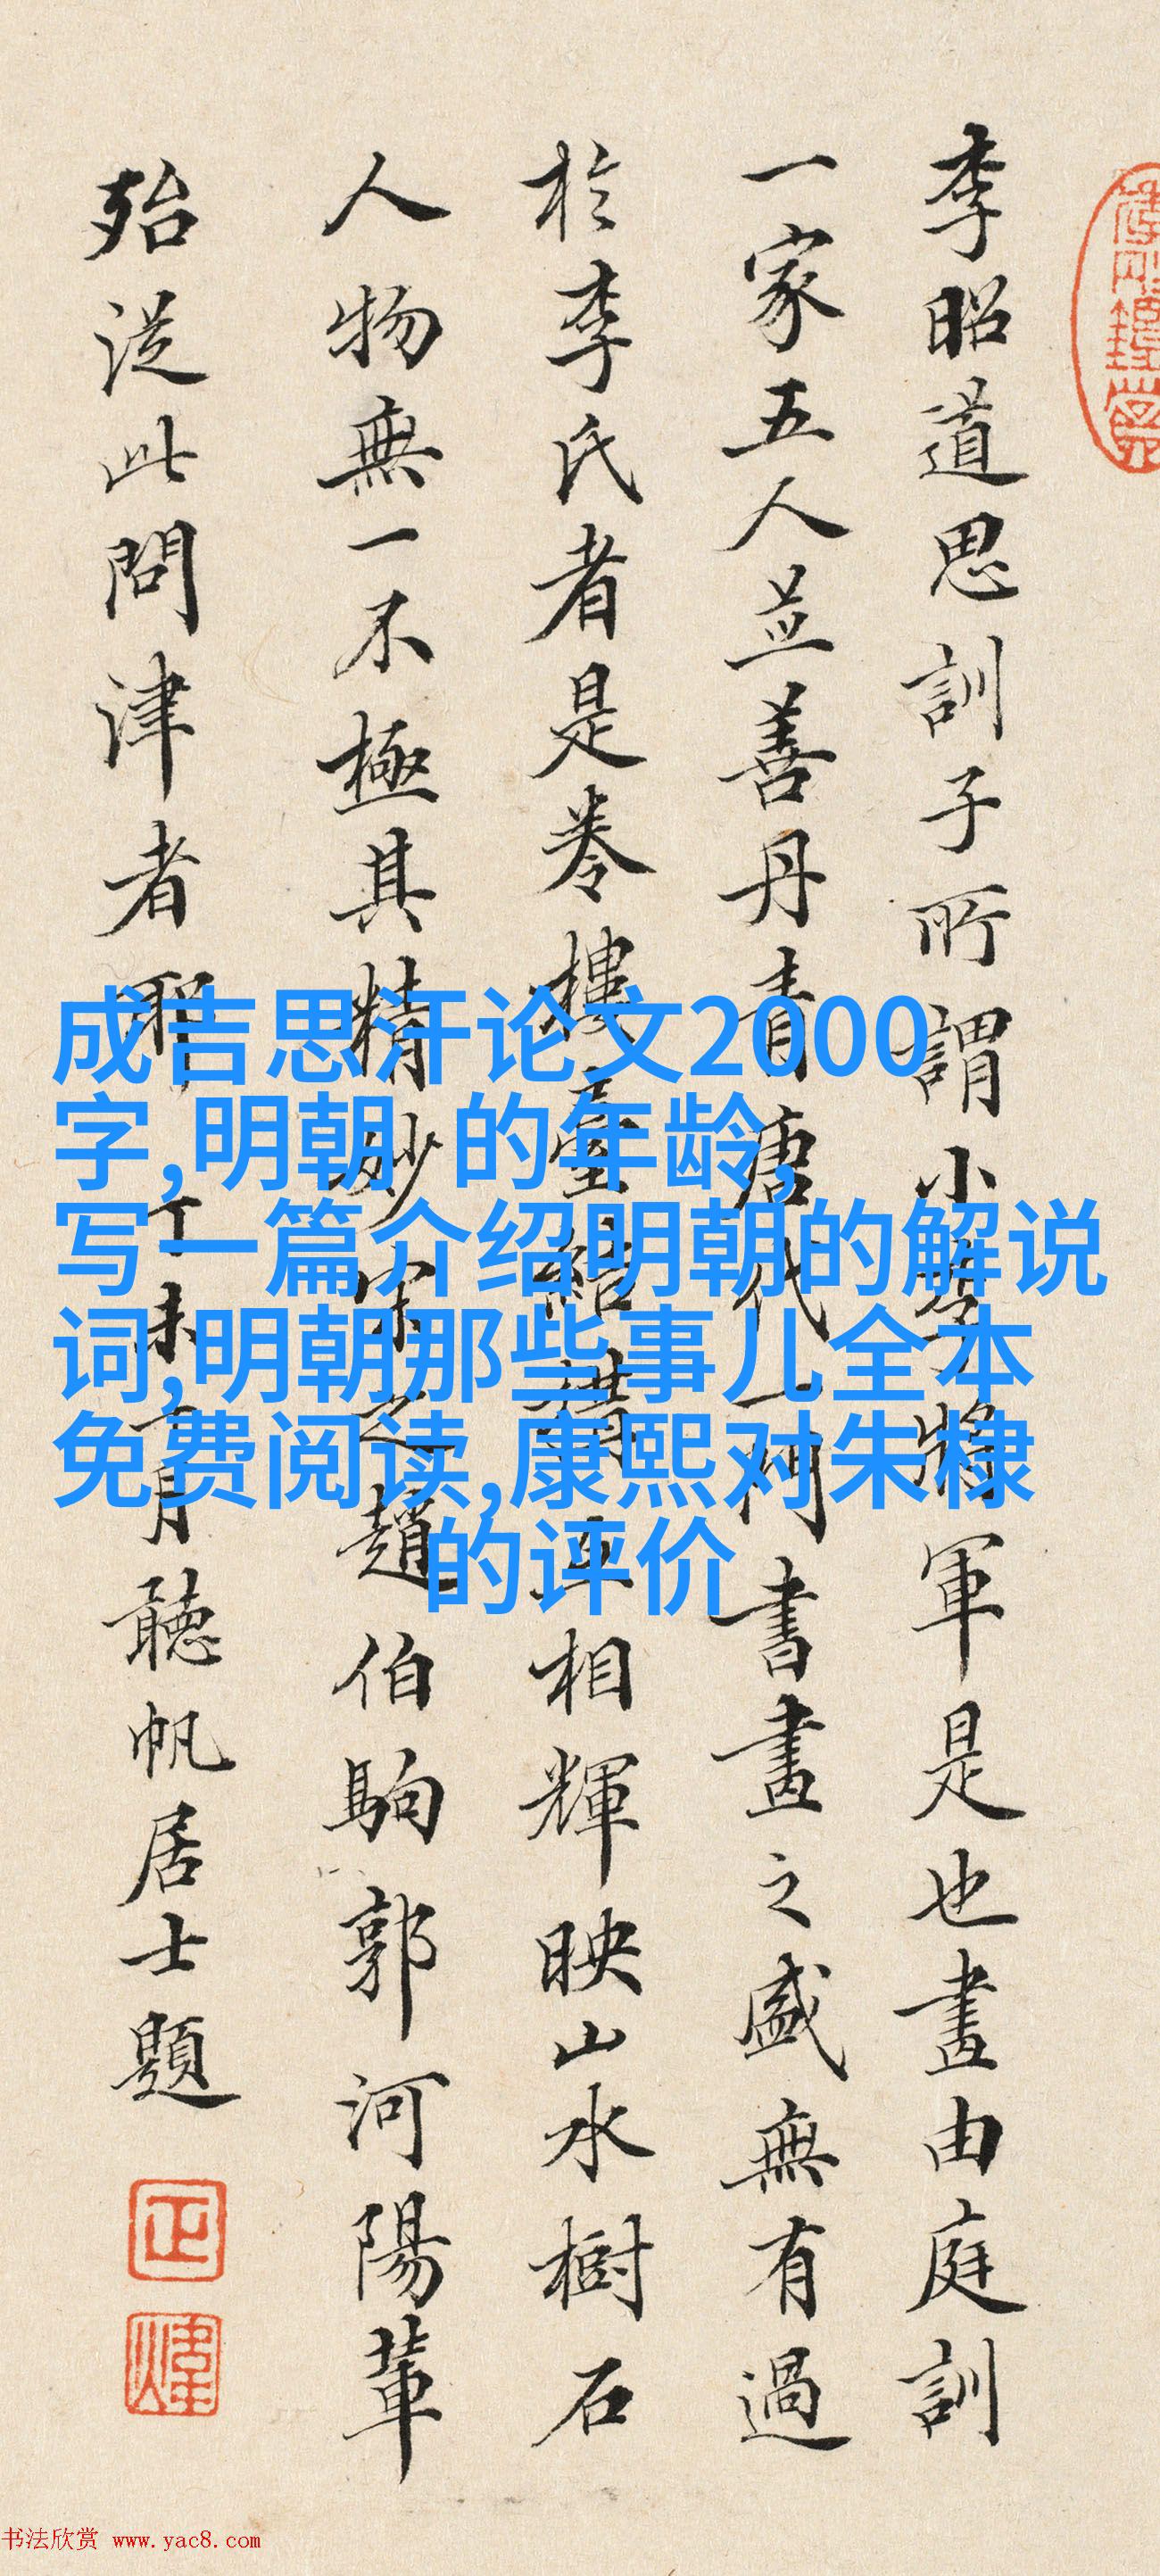 李昭道思訓子所謂小李將軍是也畫由庭訓
一家五人並善丹青唐代一門書畫之盛無有過
於李氏者是卷樓臺結構互相輝映山水樹石
人物無一不極其精妙宋之趙伯駒郭河陽輩
殆從此問津者耶丁未一月聽帆居士題
成吉思汗论文2000
字,明朝 的年龄,
写一篇介绍明朝的解说
词,明朝那些事儿全本
免费阅读,康熙对朱棣
的评价
书法欣赏 www.yac8.com